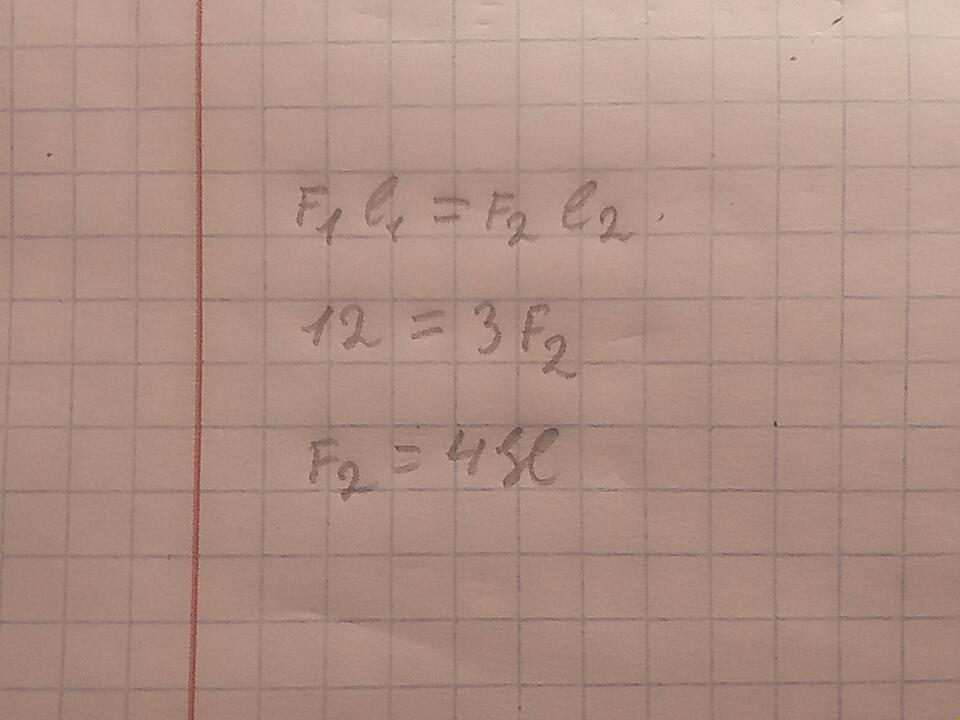 F₁ l₁ = F₂ l₂.
12 = 3 F₂
F₂ = 4